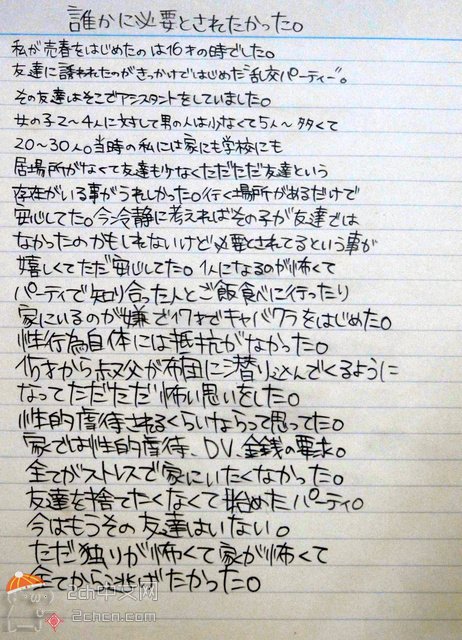 誰かに必要とされたかった。
私が売春をはじめたのは16才の時でした。
友達に誘われたのがきっかけではじめた"乱交パーティー"。
その友達はそこでアシスタントをしていました。
女の子2〜4人に対して男の人は少なくて5人〜多くて
20〜30人。当時の私には家にも学校にも
居場所がなくて友達も少なくただただ友達という
存在がいる事がうれしかった。行く場所があるだけで
安心してた。今冷静に考えればその子が友達では
なかったのかもしれないけど必要とされてるという事が
嬉しくてただ安心してた。1人になるのが怖くて
パーティで知り合った人とご飯食べに行ったり
家にいるのが嫌で17才でキャバクラをはじめた。
性行為自体には抵抗がなかった。
15才から叔父が布団に潜り込んでくるように
なってただただ怖い思いをした。
性的虐待されるくらいならって思ってた。
家では性的虐待、DV、金銭の要求。
全てがストレスで家にいたくなかった。
友達を捨てたくなくて始めたパーティ。
今はもうその友達はいない。
ただ独りが怖くて家が怖くて
全てから逃げたかった。
2ch中文网
2chcn.com